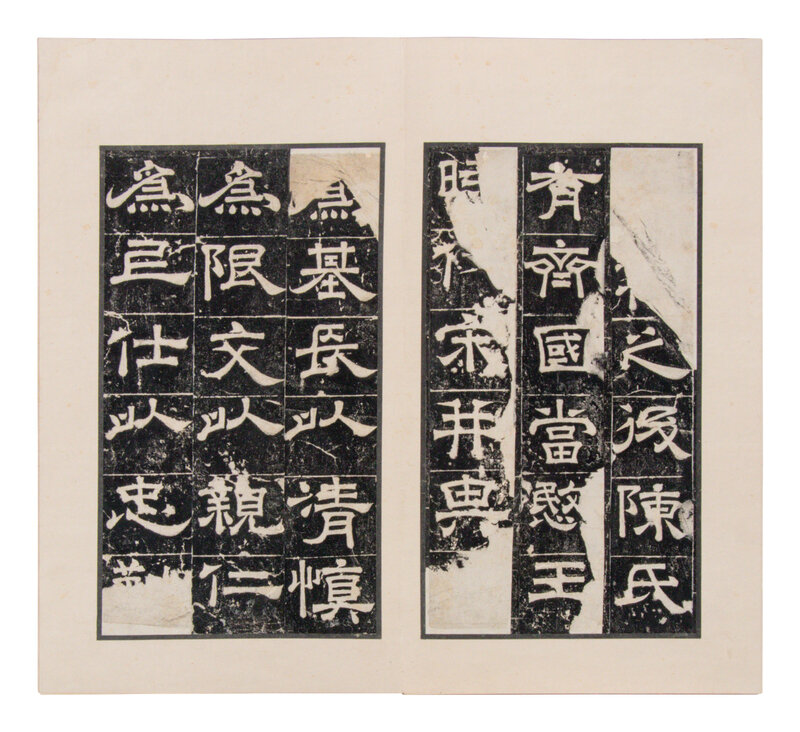 之後陳氏
有齊國當愍王
時 宋并
為基長以清慎
為限文以親仁
為 仕以忠